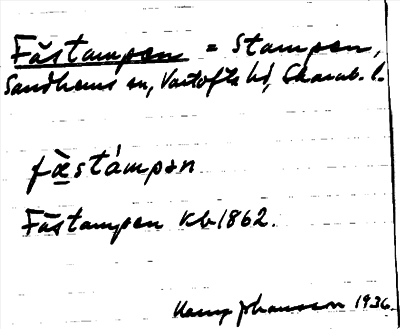 Fästampen = Stampen,
Sandhems sn, Vartofta hd, Skarab. l.
fæ̀stámpən
Fästampen Kb 1862.
Johansson 1936.